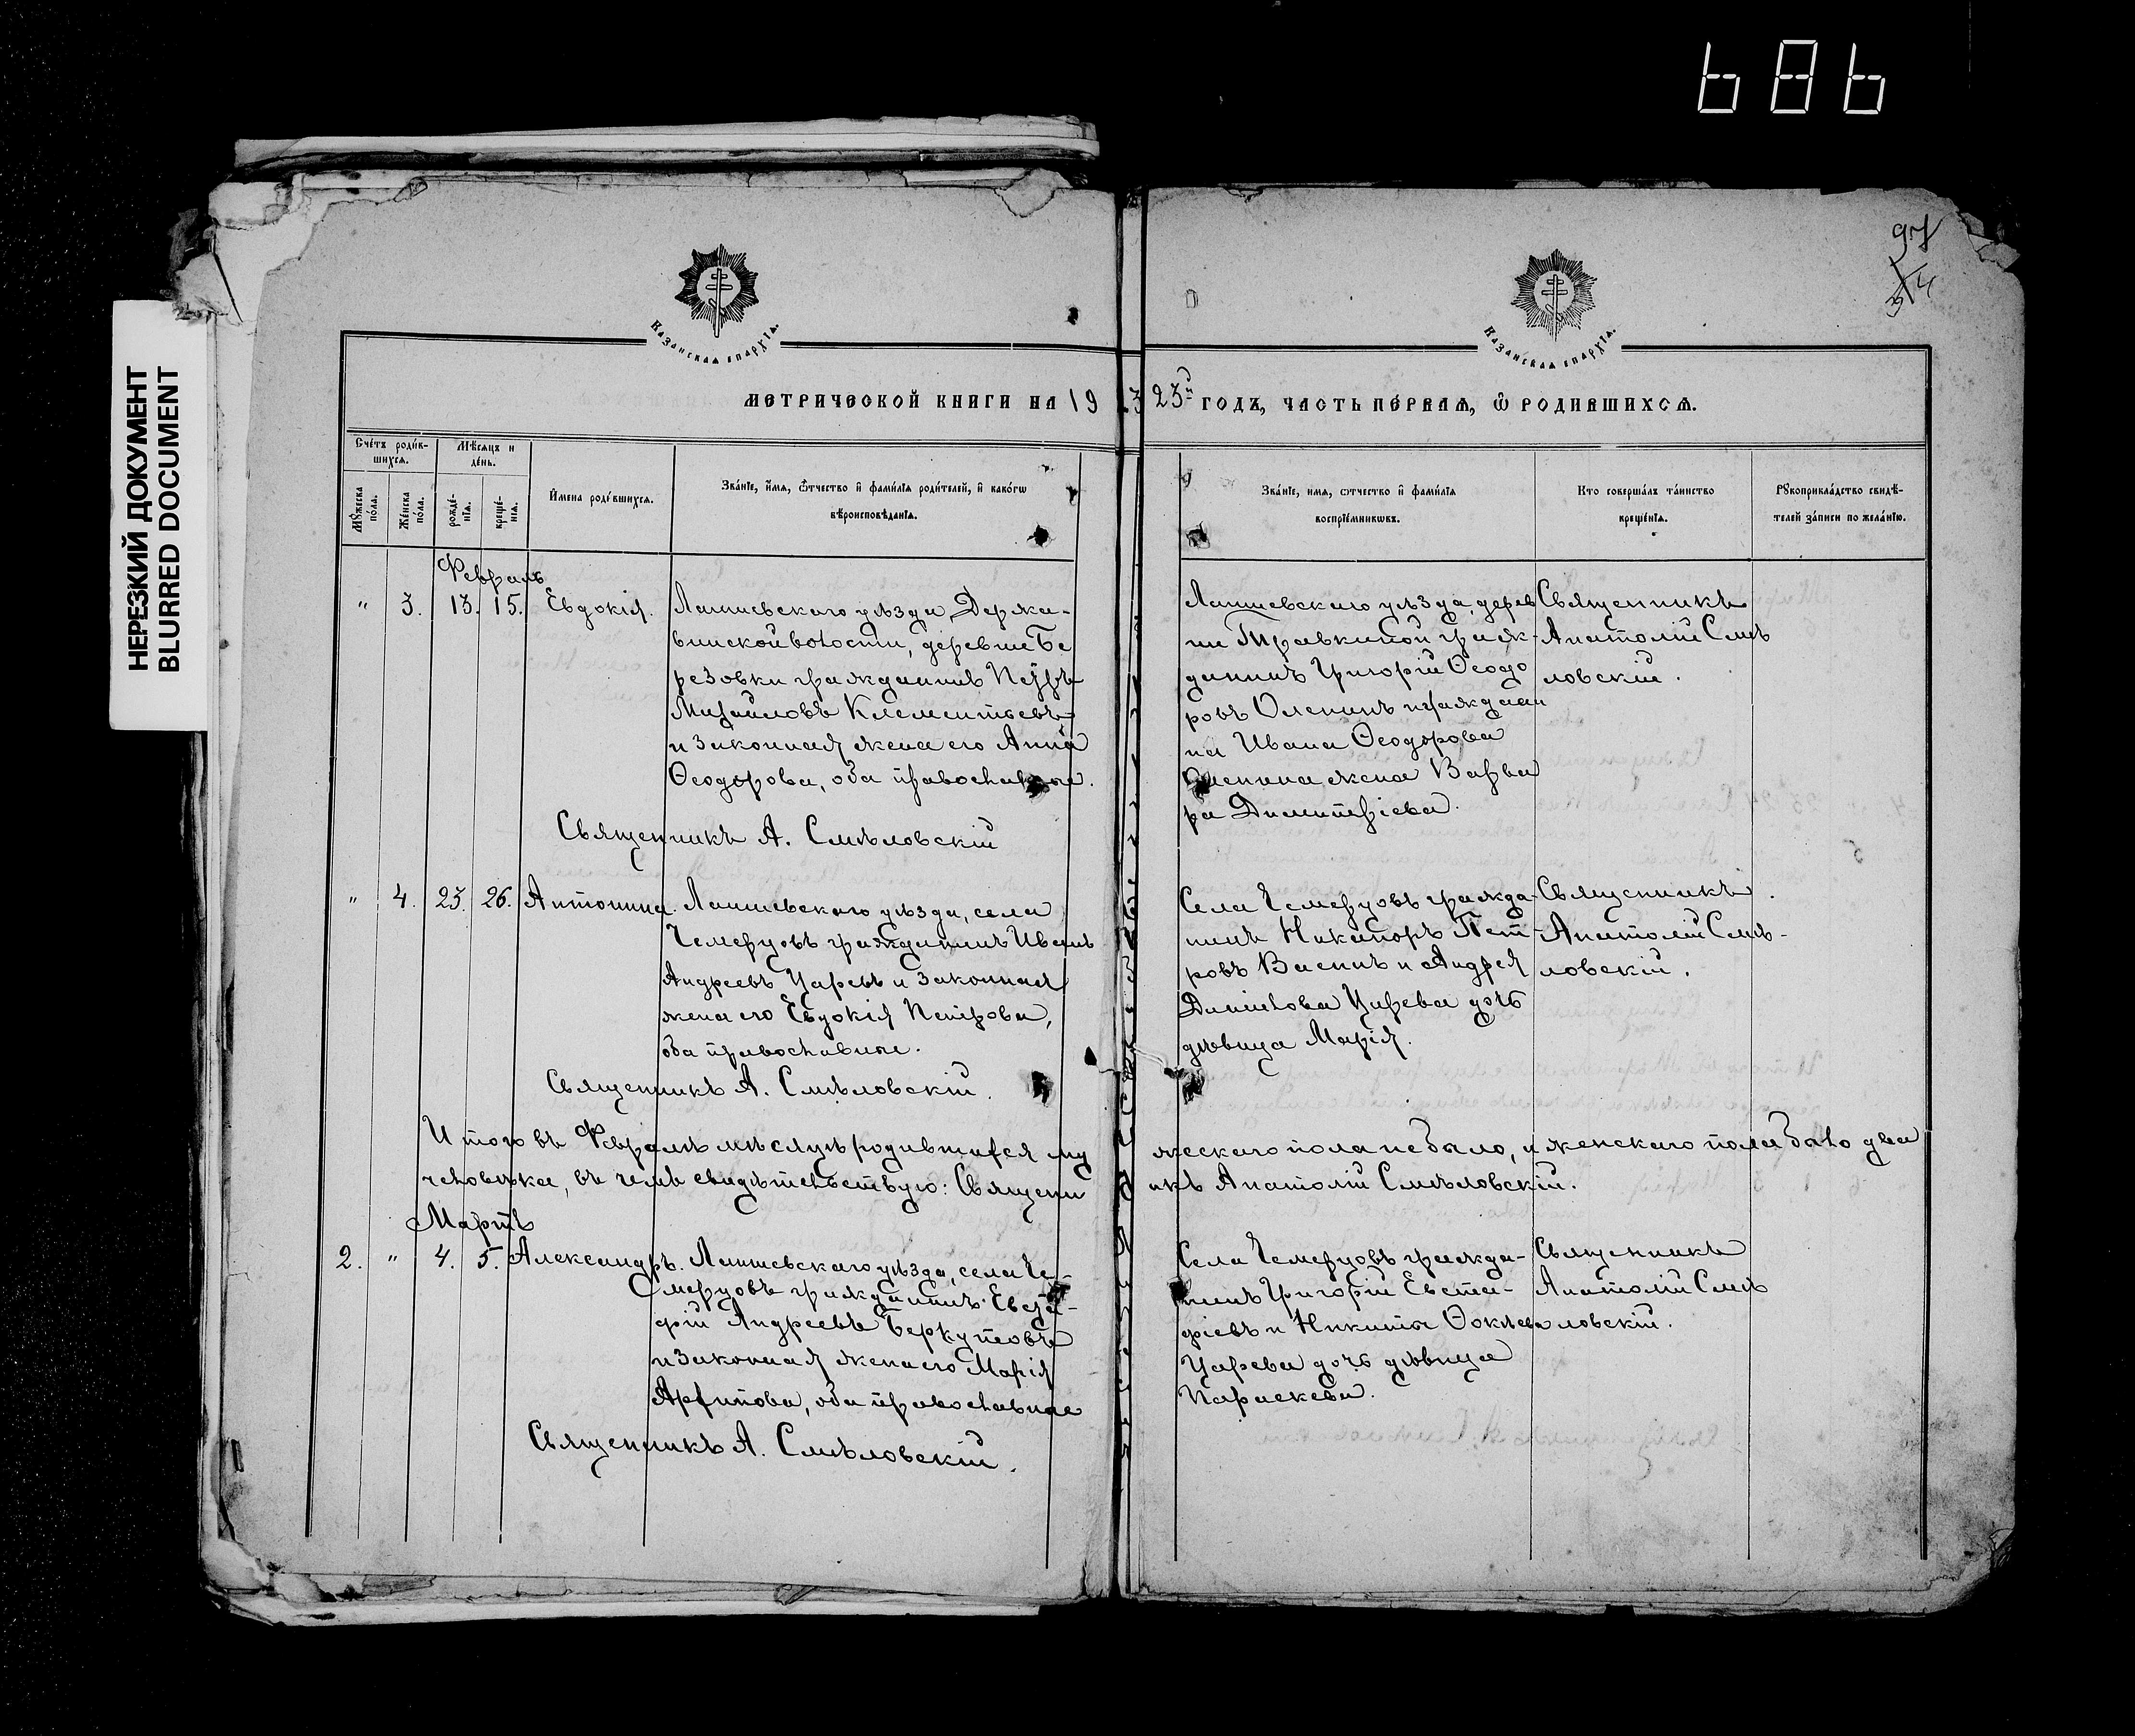 686
НЕРЕЗКИЙ ДОКУМЕНТ
BLURRED DOCUMENT
97
Казанская епархія.
Казанская епархія.
МЕТРИЧЕСКОЙ КНИГИ НА 19 23й ГОДЪ, ЧАСТЬ ПЕРВАЯ, Ѡ РОДИВШИХСЯ.
Счетъ родив-
шихся.
Мѣсяцъ и
день.
Мужеска
пола.
Женска
пола.
рожде-
нія.
креще-
нія.
Имена родившихся.
Званіе, имя, ѿчество и фамилія родителей, и какогѡ
вѣроисповѣданія.
Званіе, имя, ѿчество и фамилія
воспріемникѡвъ.
Кто совершалъ таинство
крещенія.
Рукоприкладство свидѣ-
телей записи по желанію.
Февраль
" 3. 13. 15. Евдокія.
Лаишевскаго уѣзда, Держа-
винской волости, деревни Бе
резовки гражданинъ Петръ
Михайловъ Клементьевъ
и законная жена его Анна
Ѳеодорова, оба православные.
Лаишевскаго уѣзда, дерев
ни Травкиной граж-
данинъ Григорій Ѳеодо
ровъ Оленинъ и граждани
на Ивана Ѳеодорова
Оленина жена Варва
ра Димитріева.
Священникъ
Анатолій Смѣ
ловскій.
Священникъ А. Смѣловскій
" 4. 23. 26. Антонина.
Лаишевскаго уѣзда, села
Чемерцовъ гражданинъ Иванъ
Андреевъ Царевъ и законная
жена его Евдокія Петрова,
оба православные.
Села Чемерцовъ гражда-
нинъ Никаноръ Пет-
ровъ Васинъ и Андрея
Данилова Царева дочь
дѣвица Марія.
Священникъ
Анатолій Смѣ-
ловскій.
Священникъ А. Смѣловскій.
Итого въ Февралѣ мѣсяцѣ родившихся му жескаго пола не было, и женскаго пола было два
человѣка, въ чемъ свидѣтельствую: Священн икъ Анатолій Смѣловскій.
Мартъ
2. " 4. 5. Александръ.
Лаишевскаго уѣзда, села Че-
мерцовъ гражданинъ Евста-
фій Андреевъ Беркутовъ
и законная жена его Марія
Архипова, оба православные
Села Чемерцовъ гражда-
нинъ Григорій Евста-
фіевъ и Никиты
Царева дочь дѣвица
Параскева.
Священникъ
Анатолій Смѣ
ловскій.
Священникъ А. Смѣловскій.